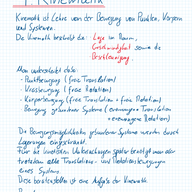 1. Kinematik
Kinematik ist Lehre von der Bewegung von Punkten, Körpern
und Systemen.
Die Kinematik beschreibt die Lage im Raum,
Geschwindigkeit sowie die
Beschleunigung.
Man unterscheidet die:
- Punktbewegung (freie Translation)
- Kreisbewegung (freie Rotation)
- Körperbewegung (freie Translation + freie Rotation)
- Bewegung gebundener Systeme (erzwungene Translation
+ erzwungene Rotation)
Die Bewegungsmöglichkeiten gebundener Systeme werden durch
Lagerungen eingeschränkt.
Für die weiteren Untersuchungen benötigt man
alle Translations- und Rotationsbewegungen
eines Systems
Dies ist eine Aufgabe der Kinematik.